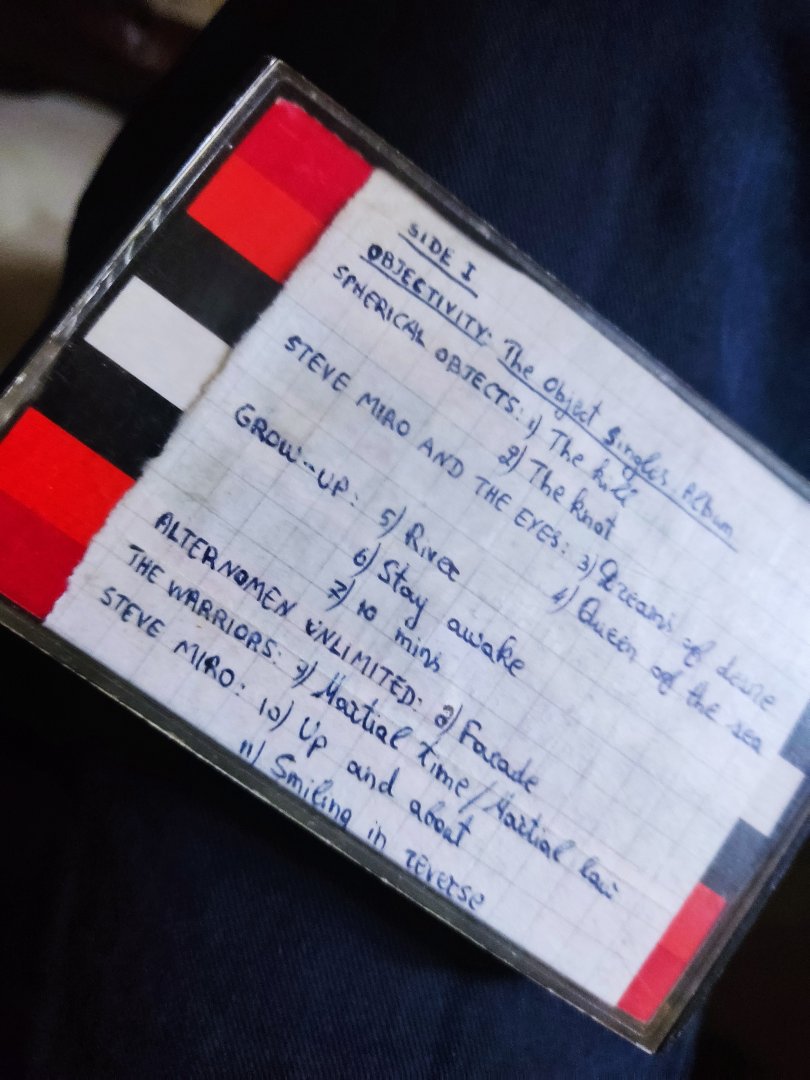 SIDE I
OBJECTIVITY: The Object Singles Album
SPHERICAL OBJECTS: 1) The kill
2) The knot
STEVE MIRO AND THE EYES: 3) Dreams of desire
4) Queen of the sea
GROW-UP: 5) River
6) Stay awake
7) 10 mins
ALTERNOMEN UNLIMITED: 8) Facade
THE WARRIORS: 9) Martial time/Martial law
STEVE MIRO: 10) Up and about
11) Smiling in reverse